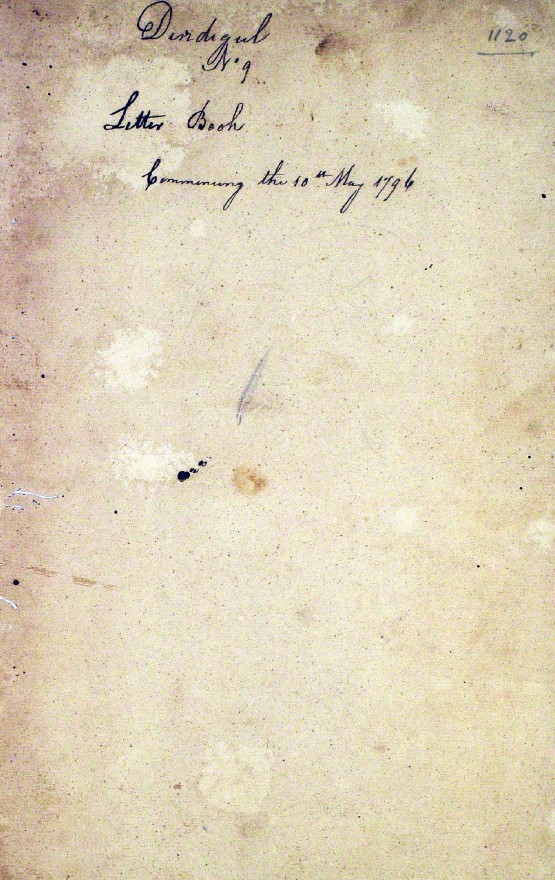 Dindigul
1120
No 9
Letter Book
Commencing the 10th May 1796